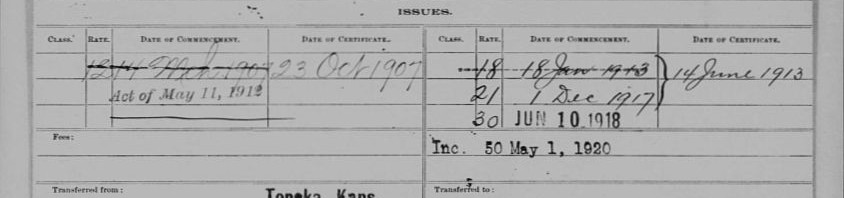 ISSUES.
CLASS. RATE. DATE OF COMMENCEMENT. DATE OF CERTIFICATE. CLASS. RATE. DATE OF COMMENCEMENT. DATE OF CERTIFICATE.
12 14 Mch 1907 23 Oct 1907 18 18 Jan 1913 14 June 1913
Act of May 11, 1912 21 1 Dec 1917
30 JUN 10 1918
Fees:
Inc. 50 May 1, 1920
Transferred from: Topeka, Kans Transferred to: